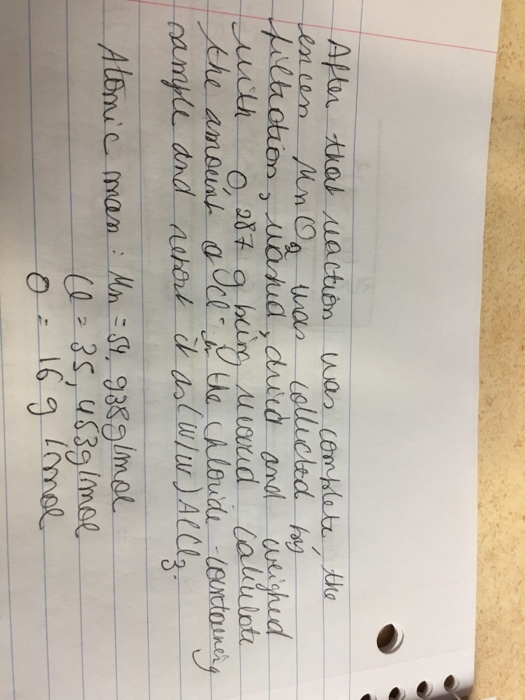 After that reaction was complete, the
excen MnO2 was collected by
filtration, washed, dried and weighed
with 0,287 g being recovered Calculate
the amount of Cl- in the chloride-containing
sample and report it as (w/w) AlCl3.
Atomic man: Mn = 54,938g/mol
Cl = 35,453g/mol
O = 16 g/mol